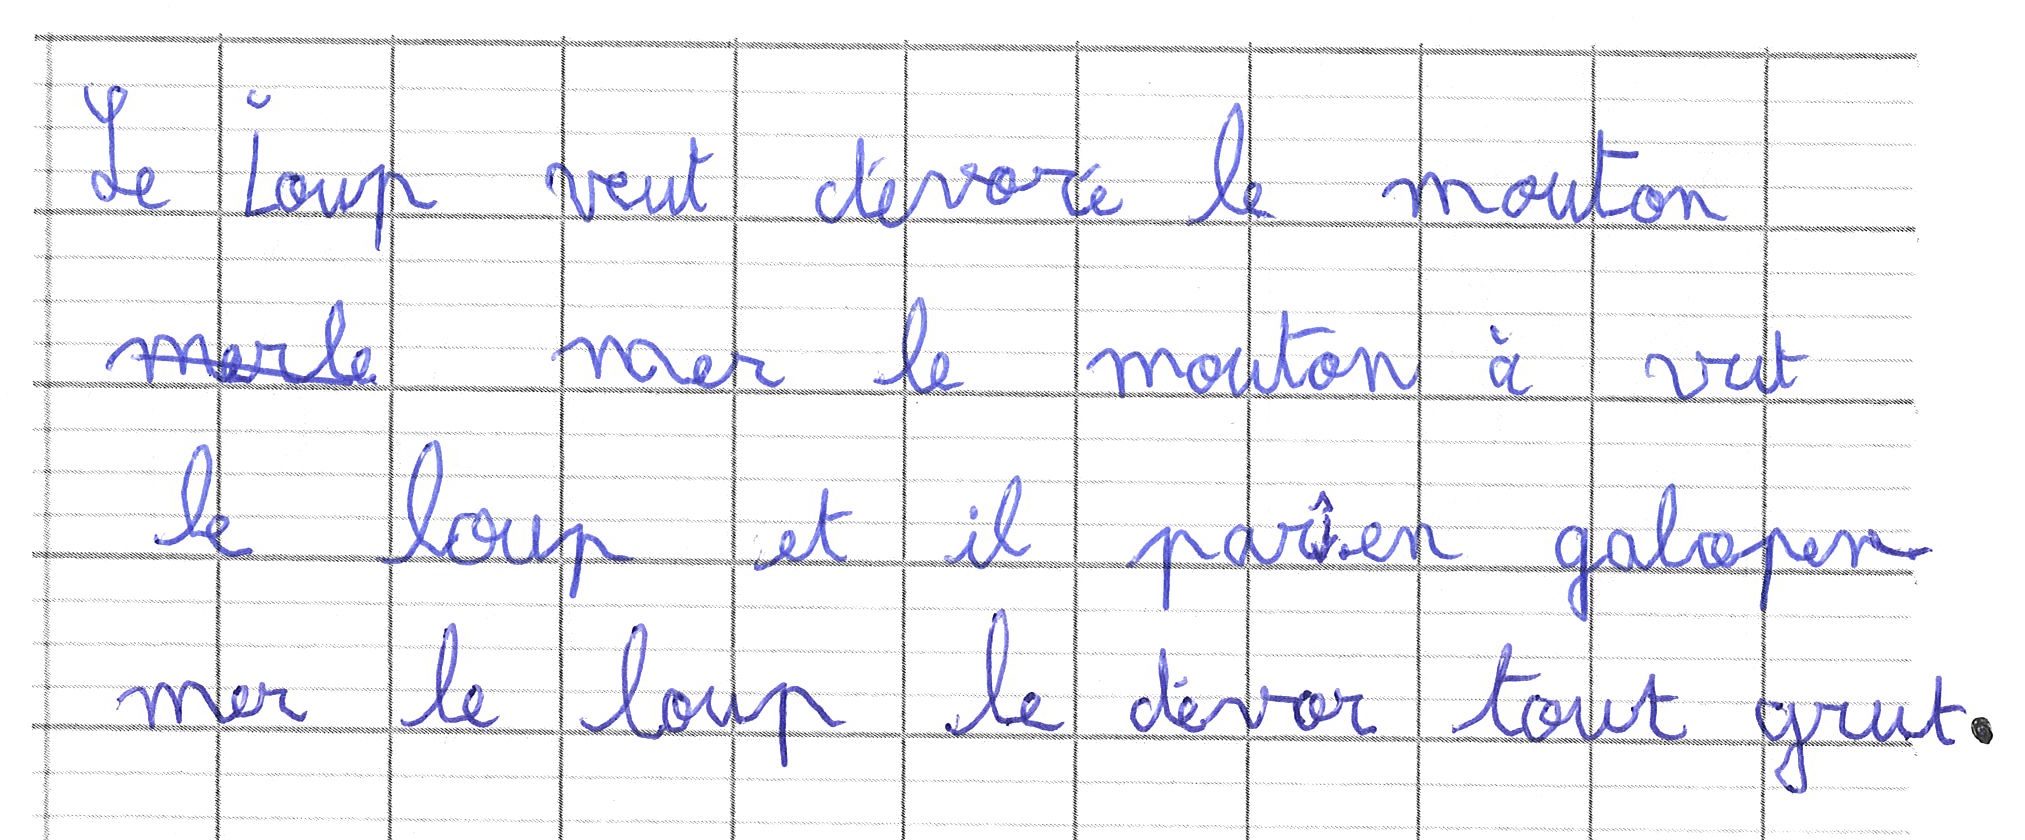 Le Loup veut dévoré le mouton
merle mer le mouton à vut
le loup et il parten galopen
mer le loup le dévor tout grut.